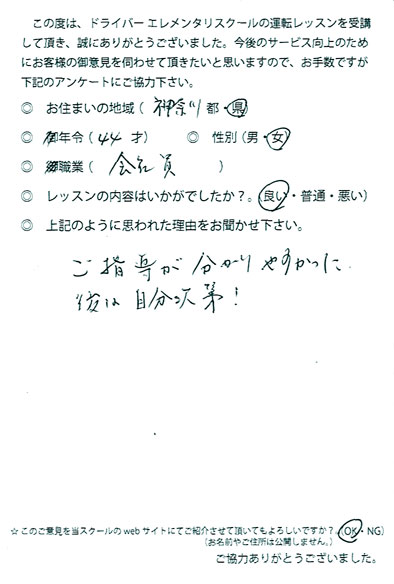 この度は、ドライバー エレメンタリスクールの運転レッスンを受講
して頂き、誠にありがとうございました。今後のサービス向上のため
にお客様の御意見を伺わせて頂きたいと思いますので、お手数ですが
下記のアンケートにご協力下さい。
◎ お住まいの地域（ 神奈川 都・県）
◎ 御年令（ 44 才） ◎ 性別（男・女）
◎ 御職業（ 会社員 ）
◎ レッスンの内容はいかがでしたか？。（良い・普通・悪い）
◎ 上記のように思われた理由をお聞かせ下さい。
ご指導が分かりやすかった。
後は自分次第！
☆このご意見を当スクールの web サイトにてご紹介させて頂いてもよろしいですか？。（OK・NG）
（お名前やご住所は公開しません。）
ご協力ありがとうございました。